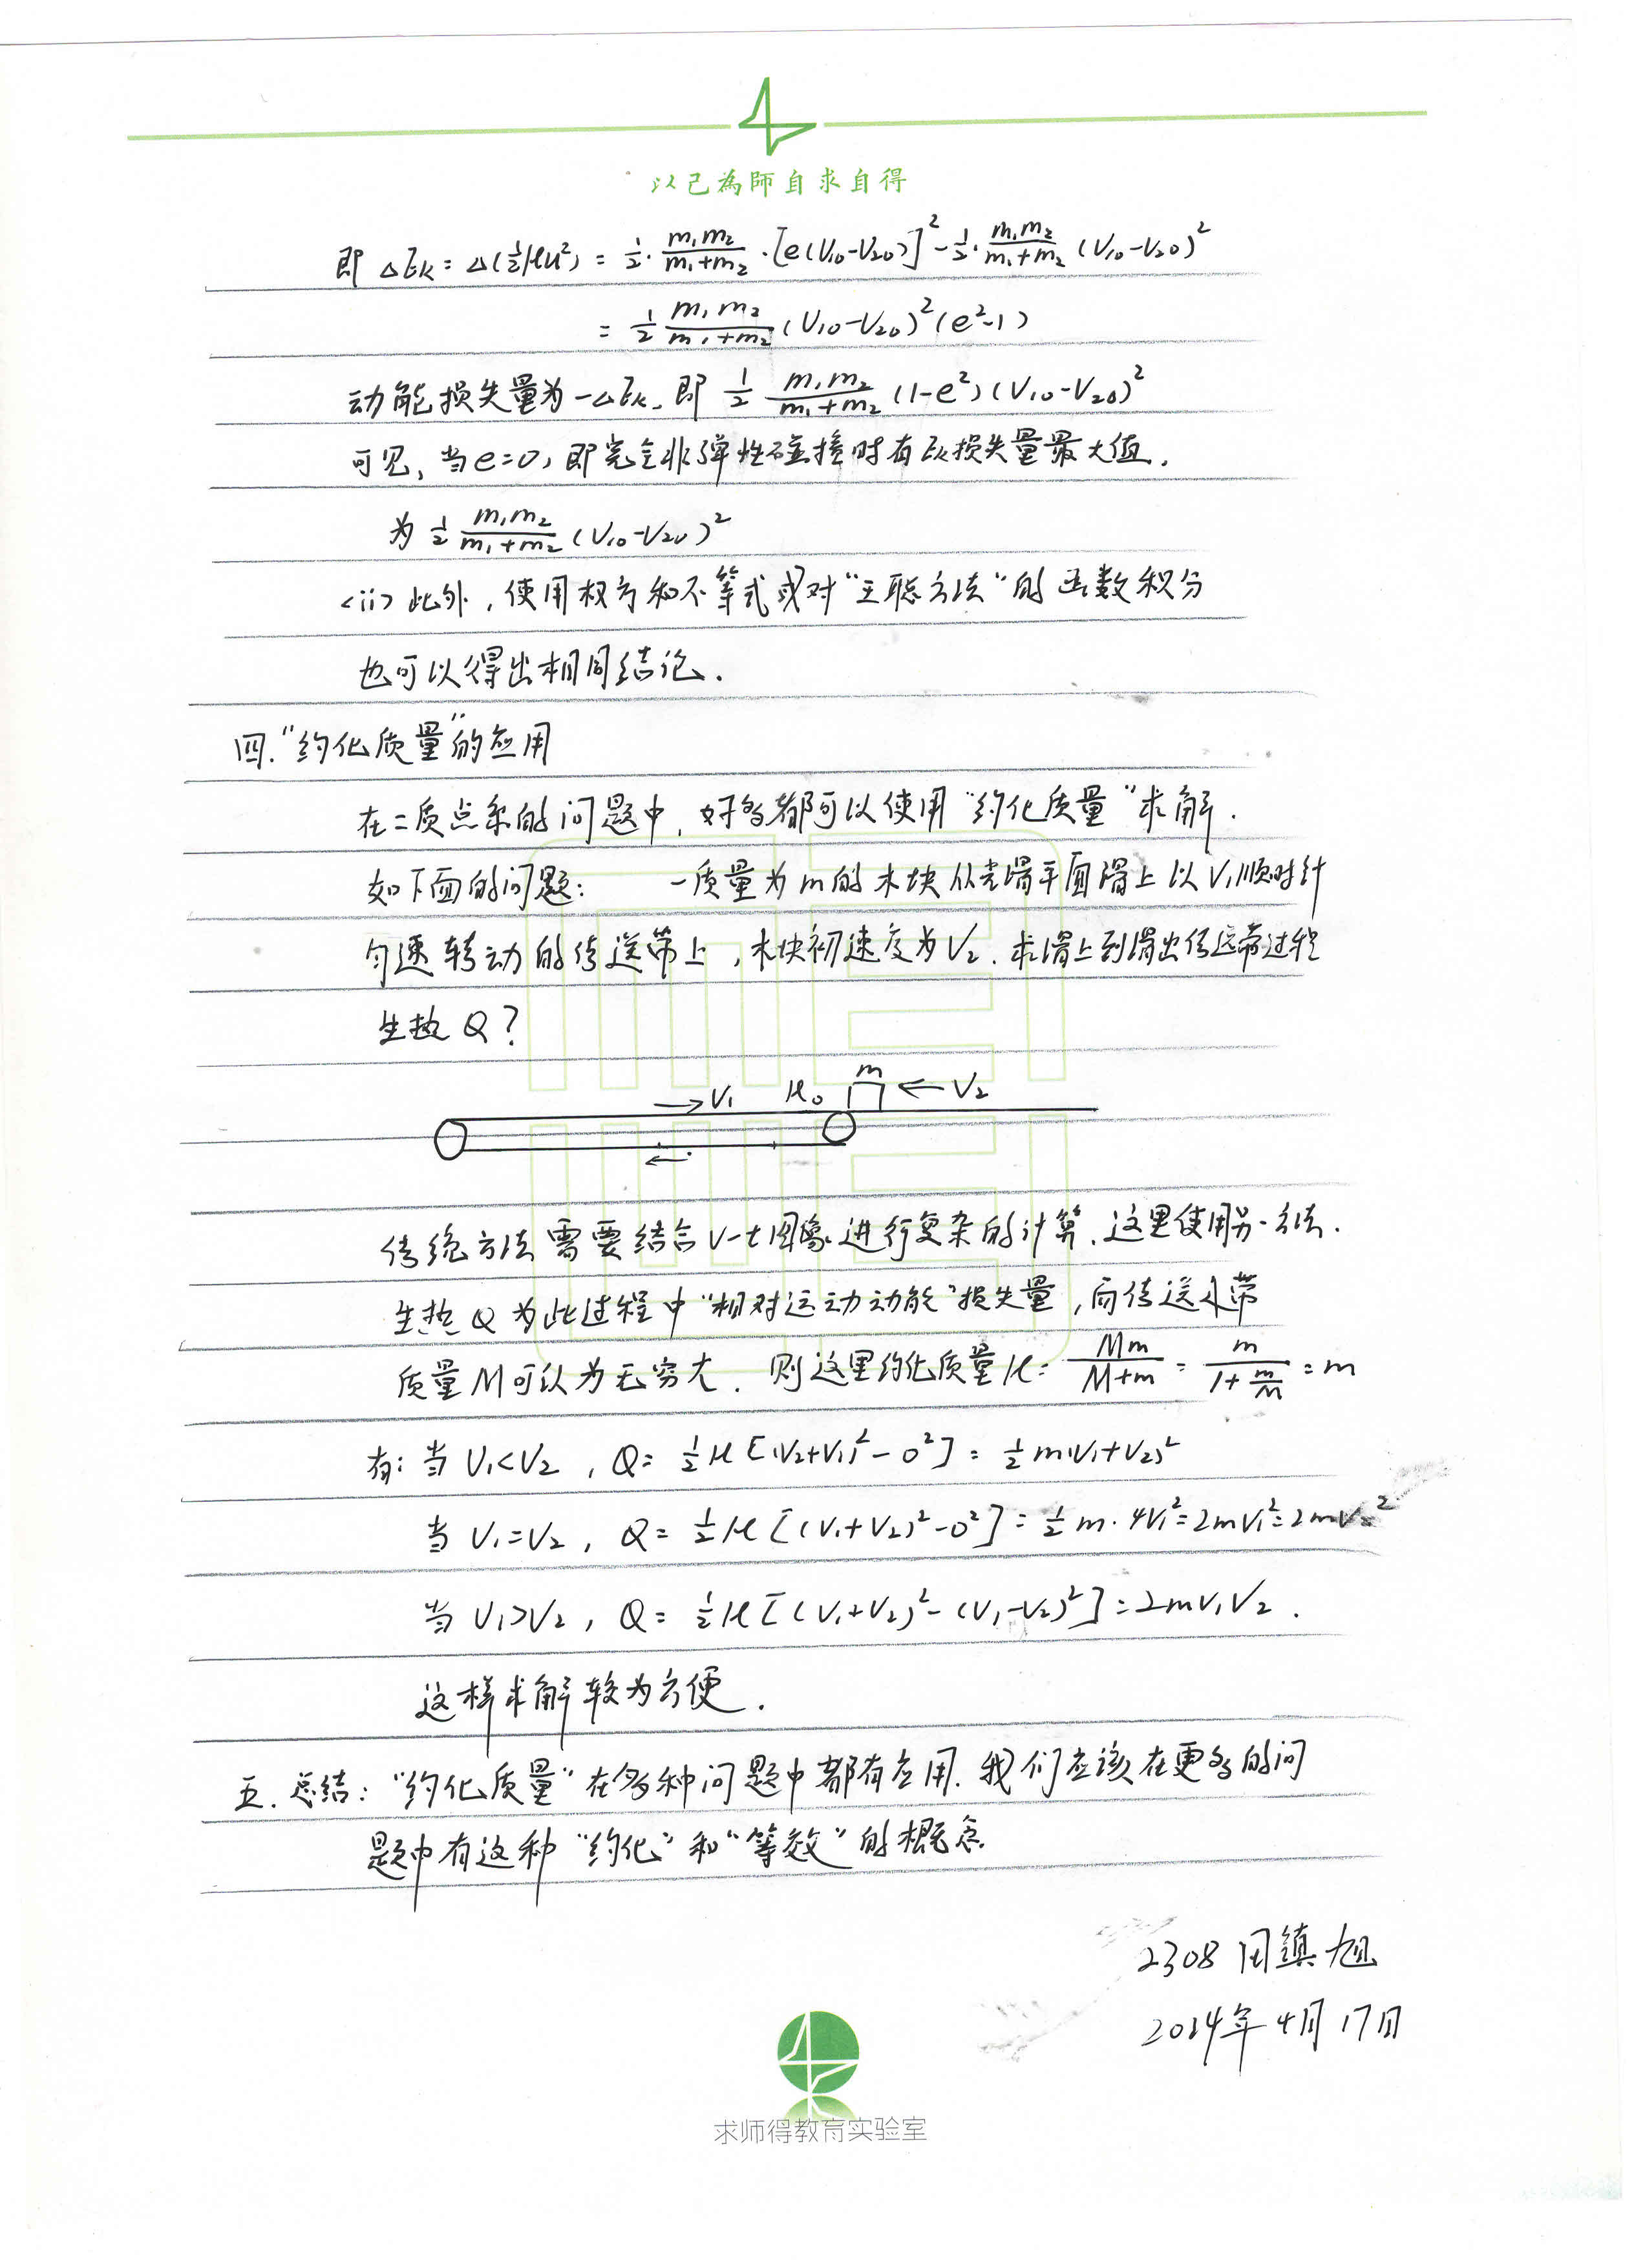 以己為師自求自得
即 ΔEk = Δ(½μu²) = ½·m₁m₂/(m₁+m₂)·[e(V₁₀-V₂₀)]² - ½·m₁m₂/(m₁+m₂) (V₁₀-V₂₀)²
= ½ m₁m₂/(m₁+m₂) (V₁₀-V₂₀)²(e²-1)
动能损失量为-ΔEk, 即 ½ m₁m₂/(m₁+m₂) (1-e²)(V₁₀-V₂₀)²
可见, 当e=0, 即完全非弹性碰撞时有Ek损失量最大值.
为 ½ m₁m₂/(m₁+m₂) (V₁₀-V₂₀)²
<ii> 此外, 使用权方和不等式或对“王聪方法”的函数积分
也可以得出相同结论.
四.“约化质量”的应用
在二质点系的问题中, 好多都可以使用“约化质量”求解.
如下面的问题: 一质量为m的木块从光滑平面滑上以V₁顺时针
匀速转动的传送带上, 木块初速度为V₂. 求滑上到滑出传送带过程
生热Q?
→V₁ μ₀ m ←V₂
←
传统方法需要结合V-t图象进行复杂的计算, 这里使用另一方法.
生热Q为此过程中“相对运动动能”损失量, 而传送带
质量M可以为无穷大. 则这里约化质量μ= Mm/(M+m) = m/(1+m/M) = m
有: 当V₁<V₂, Q= ½μ[(V₂+V₁)²-0²] = ½m(V₁+V₂)²
当V₁=V₂, Q= ½μ[(V₁+V₂)²-0²] = ½m·4V₁²=2mV₁²=2mV₂²
当V₁>V₂, Q= ½μ[(V₁+V₂)²-(V₁-V₂)²]=2mV₁V₂.
这样求解较为方便.
五. 总结: “约化质量”在多种问题中都有应用. 我们应该在更多的问
题中有这种“约化”和“等效”的概念
2308 周鎮旭
2024年4月17日
求师得教育实验室